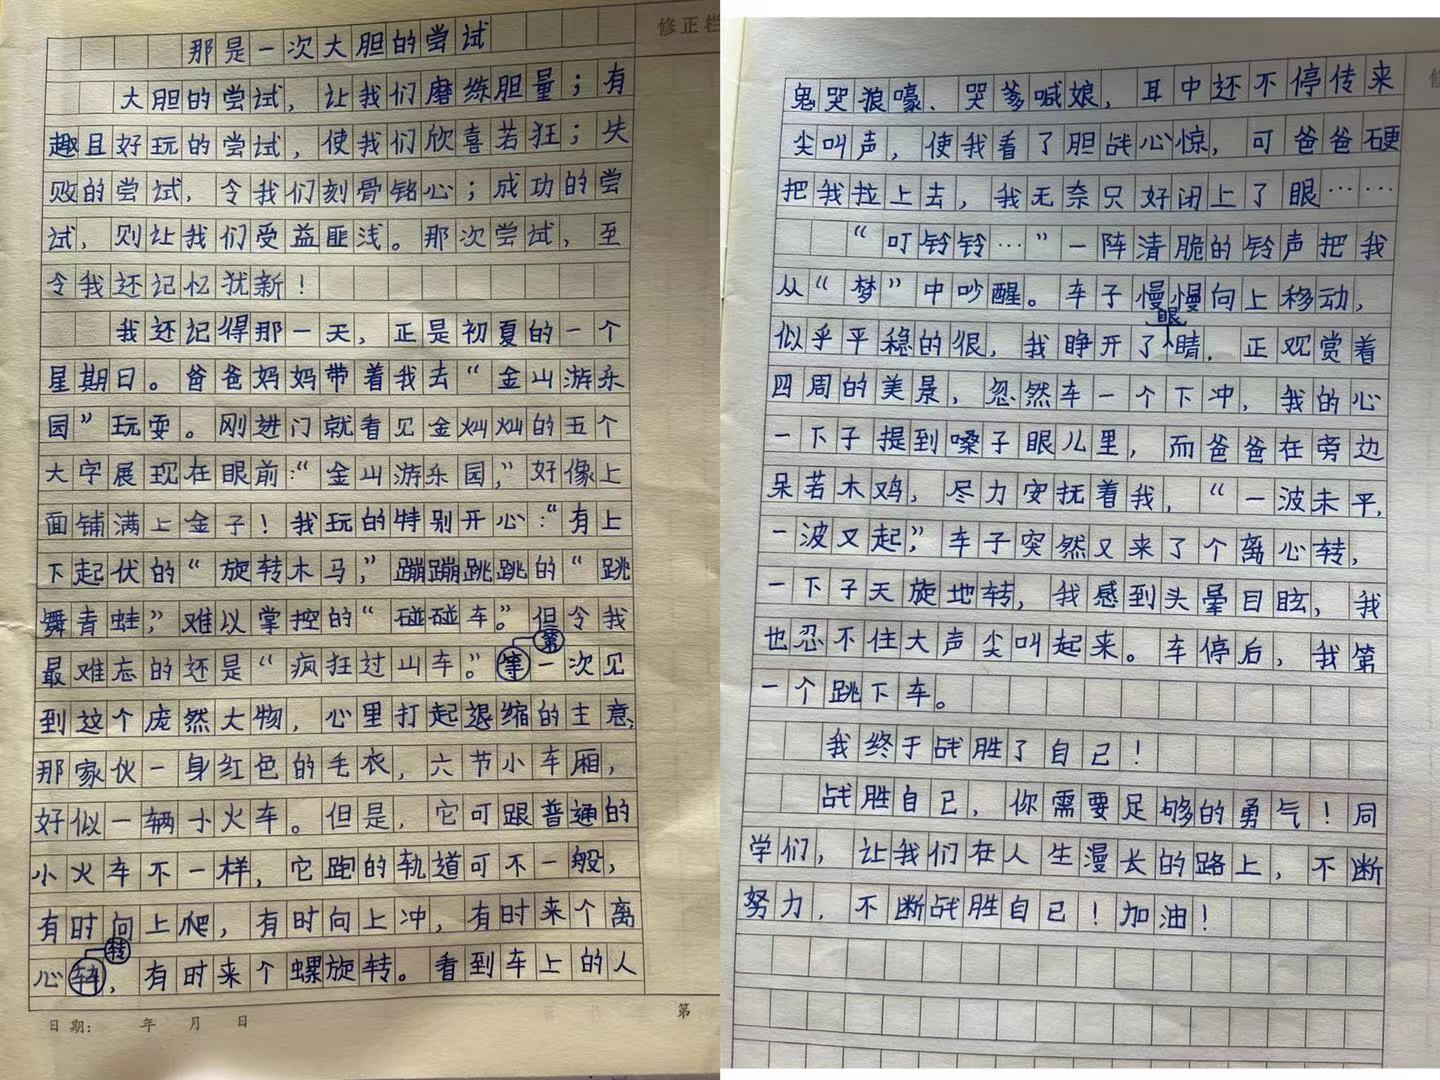 修正栏
那是一次大胆的尝试
大胆的尝试，让我们磨练胆量；有
趣且好玩的尝试，使我们欣喜若狂；失
败的尝试，令我们刻骨铭心；成功的尝
试，则让我们受益匪浅。那次尝试，至
令我还记忆犹新！
我还记得那一天，正是初夏的一个
星期日。爸爸妈妈带着我去“金山游乐
园”玩耍。刚进门就看见金灿灿的五个
大字展现在眼前：“金山游乐园，”好像上
面铺满上金子！我玩的特别开心：“有上
下起伏的“旋转木马，”蹦蹦跳跳的“跳
舞青蛙，”难以掌控的“碰碰车。”但令我
最难忘的还是“疯狂过山车。”第一次见
到这个庞然大物，心里打起退缩的主意，
那家伙一身红色的毛衣，六节小车厢，
好似一辆小火车。但是，它可跟普通的
小火车不一样，它跑的轨道可不一般，
有时向上爬，有时向上冲，有时来个离
心转，有时来个螺旋转。看到车上的人
日期： 年 月 日
第
鬼哭狼嚎、哭爹喊娘，耳中还不停传来
尖叫声，使我看了胆战心惊，可爸爸硬
把我拉上去，我无奈只好闭上了眼……
“叮铃铃…”一阵清脆的铃声把我
从“梦”中吵醒。车子慢慢向上移动，
似乎平稳的很，我睁开了眼睛，正观赏着
四周的美景，忽然车一个下冲，我的心
一下子提到嗓子眼儿里，而爸爸在旁边
呆若木鸡，尽力安抚着我，“一波未平，
一波又起，”车子突然又来了个离心转，
一下子天旋地转，我感到头晕目眩，我
也忍不住大声尖叫起来。车停后，我第
一个跳下车。
我终于战胜了自己！
战胜自己，你需要足够的勇气！同
学们，让我们在人生漫长的路上，不断
努力，不断战胜自己！加油！